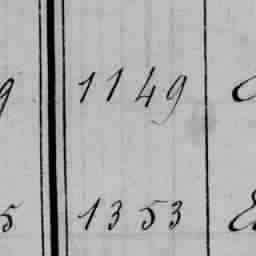 9 1149
5 1353